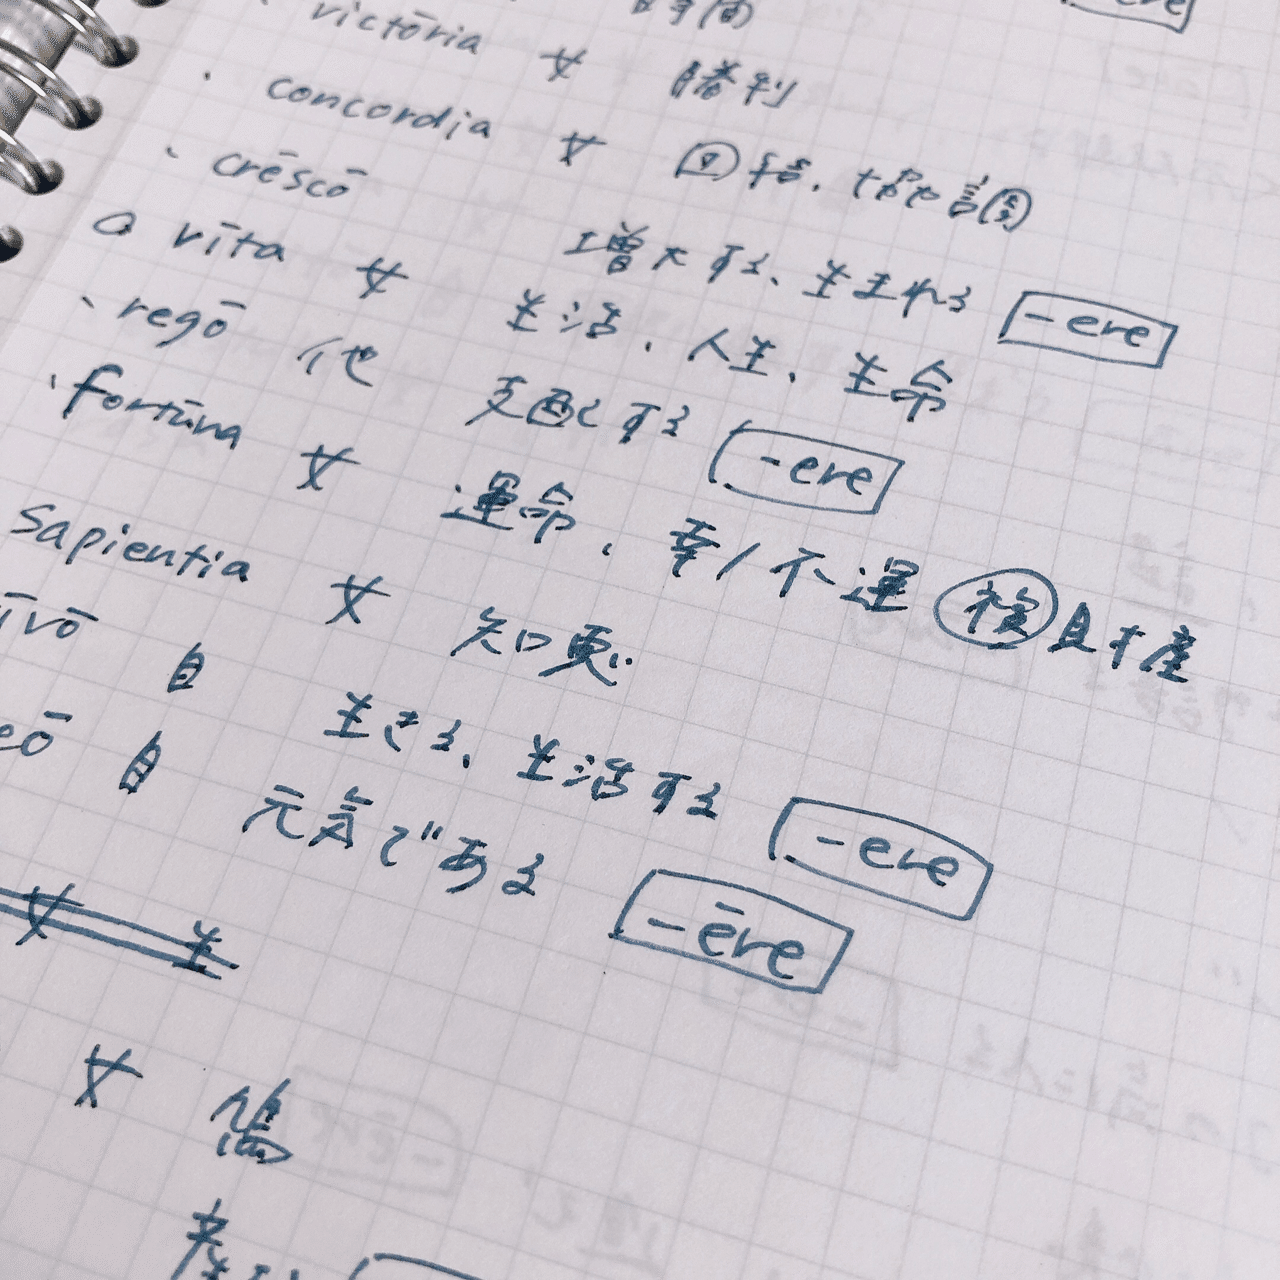 時間 -ere
victōria 女 勝利
concordia 女 団結、協調
crēscō 増大する、生まれる -ere
vīta 女 生活、人生、生命
regō 他 支配する -ere
fortūna 女 運命、幸/不運 複 財産
sapientia 女 知恵
īvō 自 生きる、生活する -ere
eō 自 元気である -ēre
女 生
女 鳩